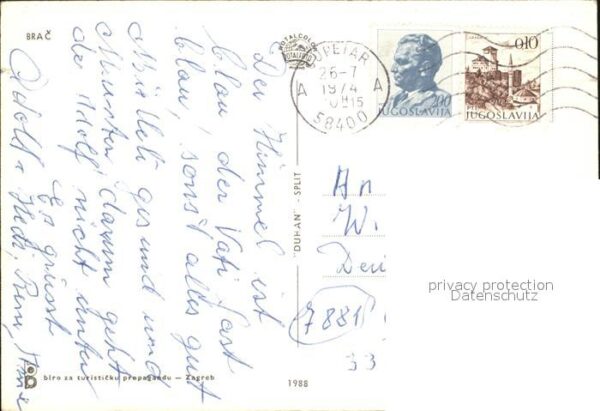 BRAČ
Der Himmel ist
blau, der Vati fast
blau, sonst alles gut
Mutti gesund und
Munter, darum geht
der Adolf nicht unter
Es grüsst
Adolf + Hedi,
ROTALCOLOR
PETAR
26-7
1974
A A
58400
2,00
JUGOSLAVIJA
0,10
JUGOSLAVIJA
"DUHAN" - SPLIT
An
W
Deu
7881
33
privacy protection
Datenschutz
biro za turističku propagandu — Zagreb
1988